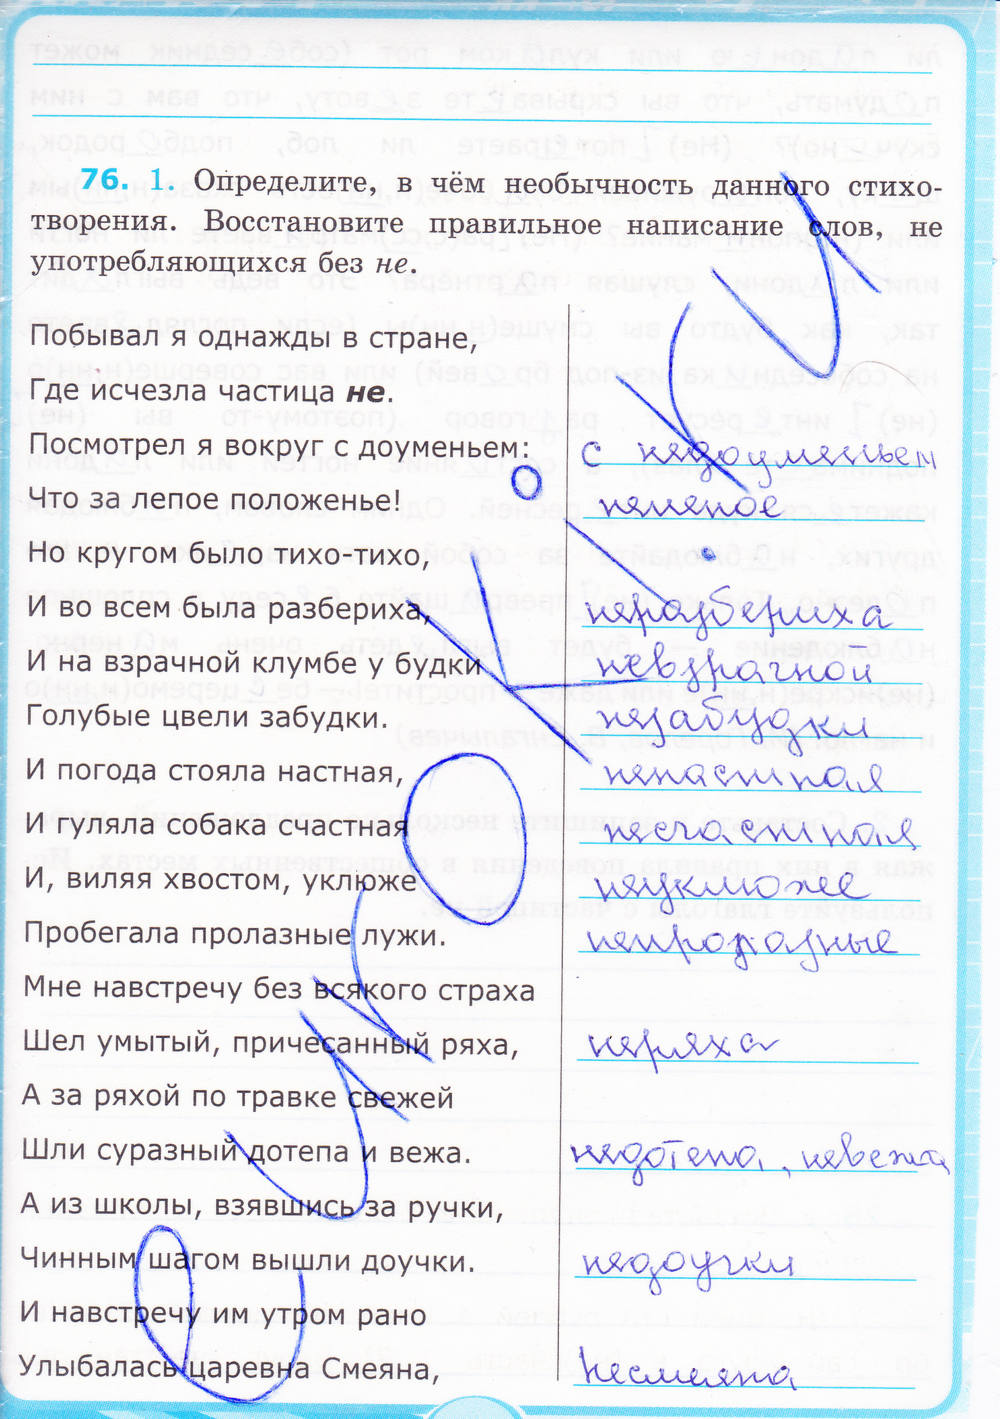 76. 1. Определите, в чём необычность данного стихо-
творения. Восстановите правильное написание слов, не
употребляющихся без не.
Побывал я однажды в стране,
Где исчезла частица не.
Посмотрел я вокруг с доуменьем: с недоуменьем
Что за лепое положенье! нелепое
Но кругом было тихо-тихо,
И во всем была разбериха, неразбериха
И на взрачной клумбе у будки невзрачной
Голубые цвели забудки. незабудки
И погода стояла настная, ненастная
И гуляла собака счастная несчастная
И, виляя хвостом, уклюже неуклюжее
Пробегала пролазные лужи. непролазные
Мне навстречу без всякого страха
Шел умытый, причесанный ряха, неряха
А за ряхой по травке свежей
Шли суразный дотепа и вежа. недотепа, невежа
А из школы, взявшись за ручки,
Чинным шагом вышли доучки. недоучки
И навстречу им утром рано
Улыбалась царевна Смеяна, Несмеяна